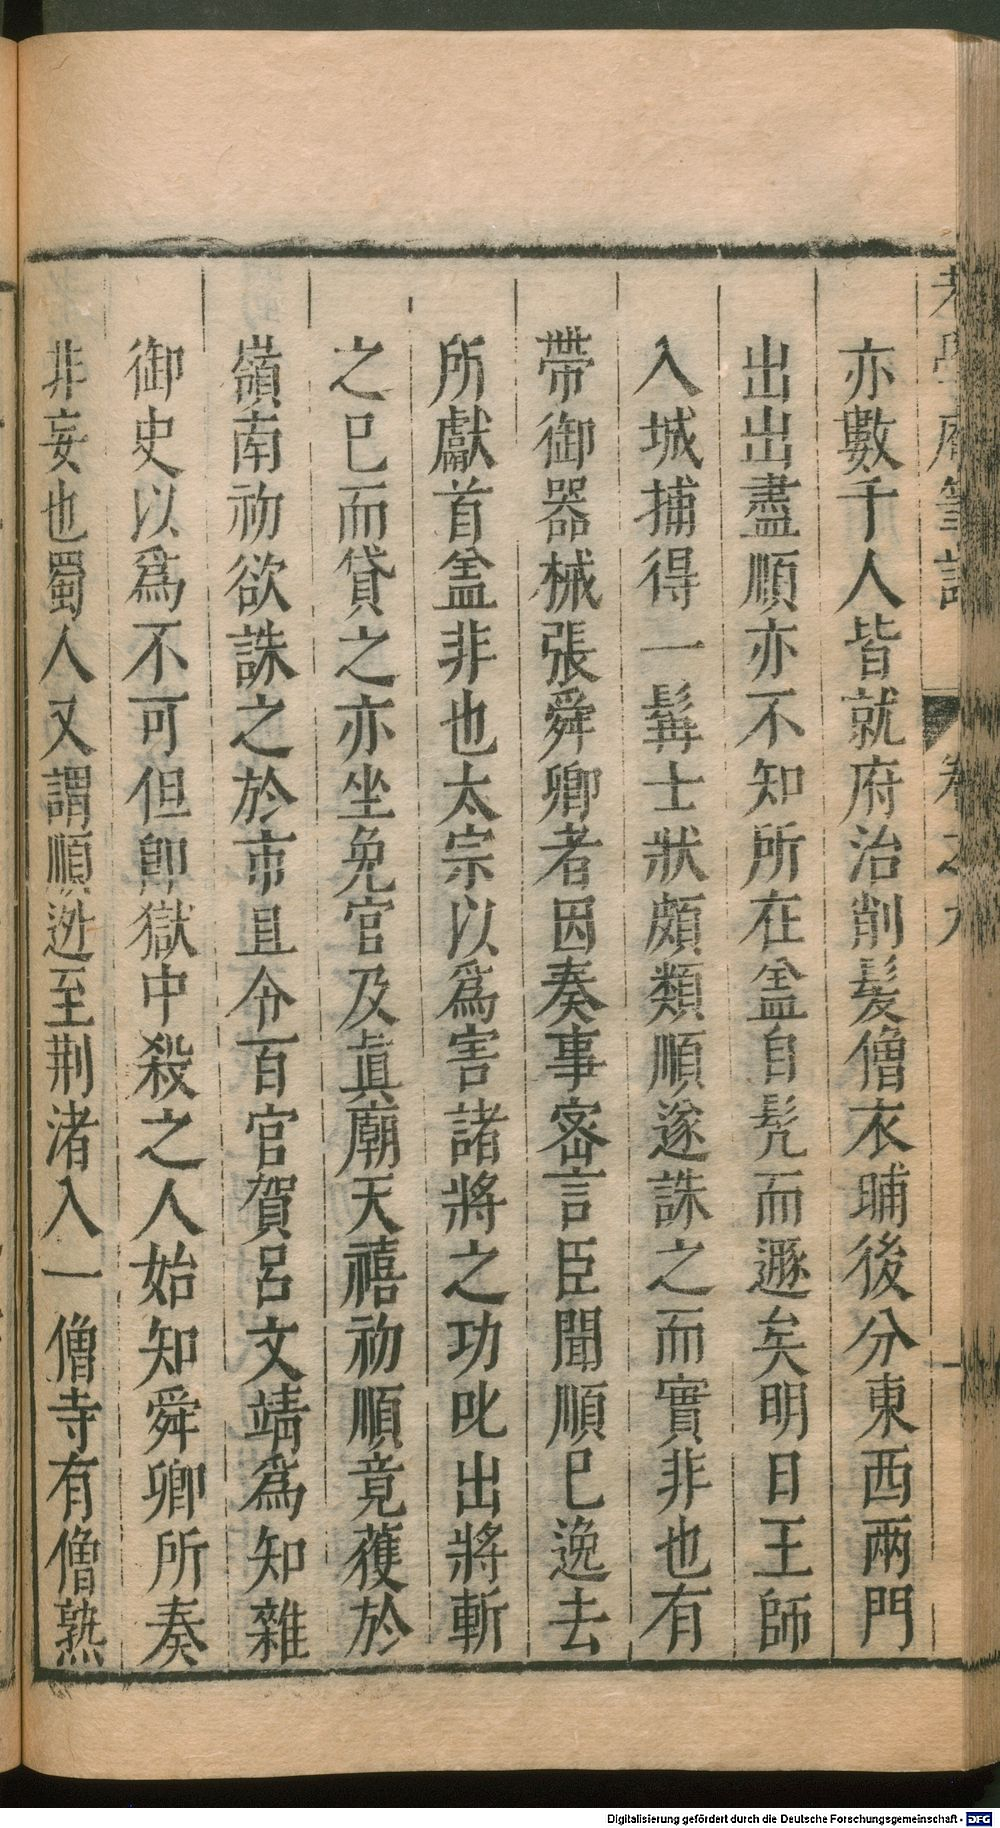 老學庵筆記 卷之九 一
亦數千人皆就府治削髮僧衣晡後分東西兩門
出出盡順亦不知所在盖自髠而遯矣明日王師
入城捕得一髯士狀頗類順遂誅之而實非也有
帶御器械張舜卿者因奏事宻言臣聞順已逸去
所獻首盖非也太宗以爲害諸將之功叱出將斬
之已而貸之亦坐免官及眞廟天禧初順竟獲於
嶺南初欲誅之於市且令百官賀呂文靖爲知雜
御史以爲不可但卽獄中殺之人始知舜卿所奏
非妄也蜀人又謂順逃至荆渚入一僧寺有僧熟
Digitalisierung gefördert durch die Deutsche Forschungsgemeinschaft - DFG